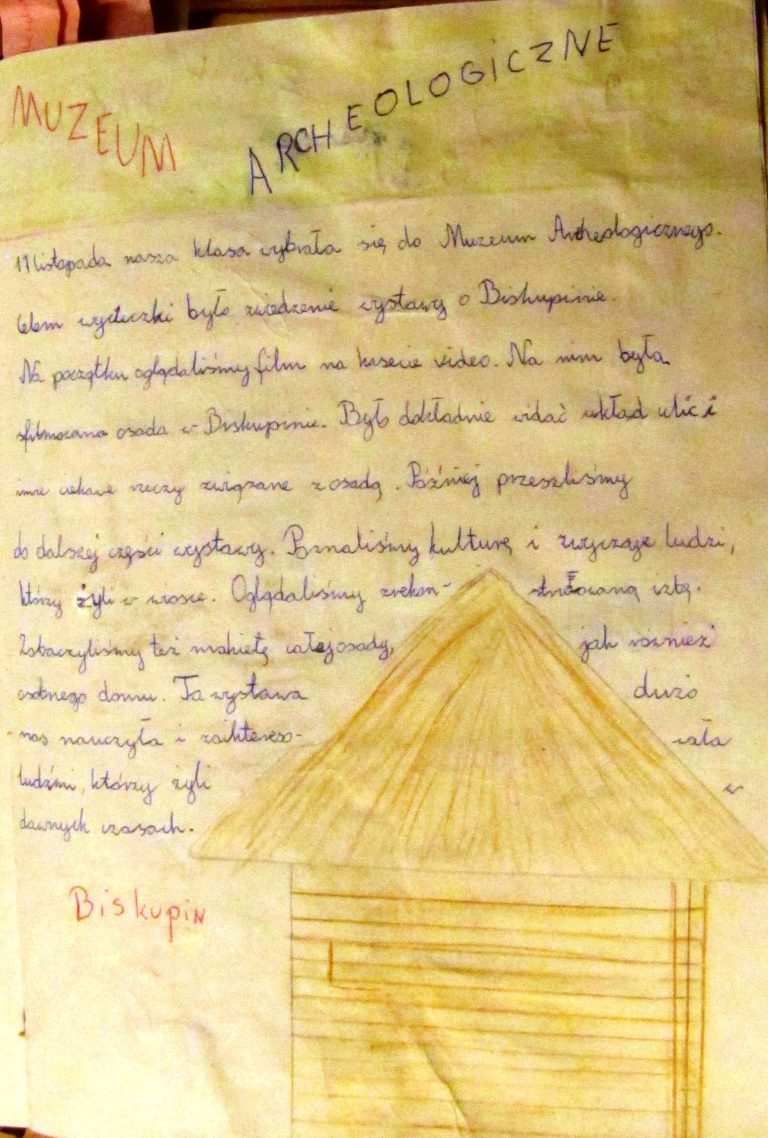 MUZEUM ARCHEOLOGICZNE
17 listopada nasza klasa wybrała się do Muzeum Archeologicznego.
Celem wycieczki było zwiedzenie wystawy o Biskupinie.
Na początku oglądaliśmy film na kasecie video. Na nim była
sfilmowana osada w Biskupinie. Było dokładnie widać układ ulic i
inne ciekawe rzeczy związane z osadą. Później przeszliśmy
do dalszej części wystawy. Poznaliśmy kulturę i zwyczaje ludzi,
którzy żyli w wiosce. Oglądaliśmy zrekon- struowaną
Zobaczyliśmy też makietę całej osady, jak również
osobnego domu. Ta wystawa dużo
nas nauczyła i zaintereso- wała
ludźmi, którzy żyli w
dawnych czasach.
Biskupin